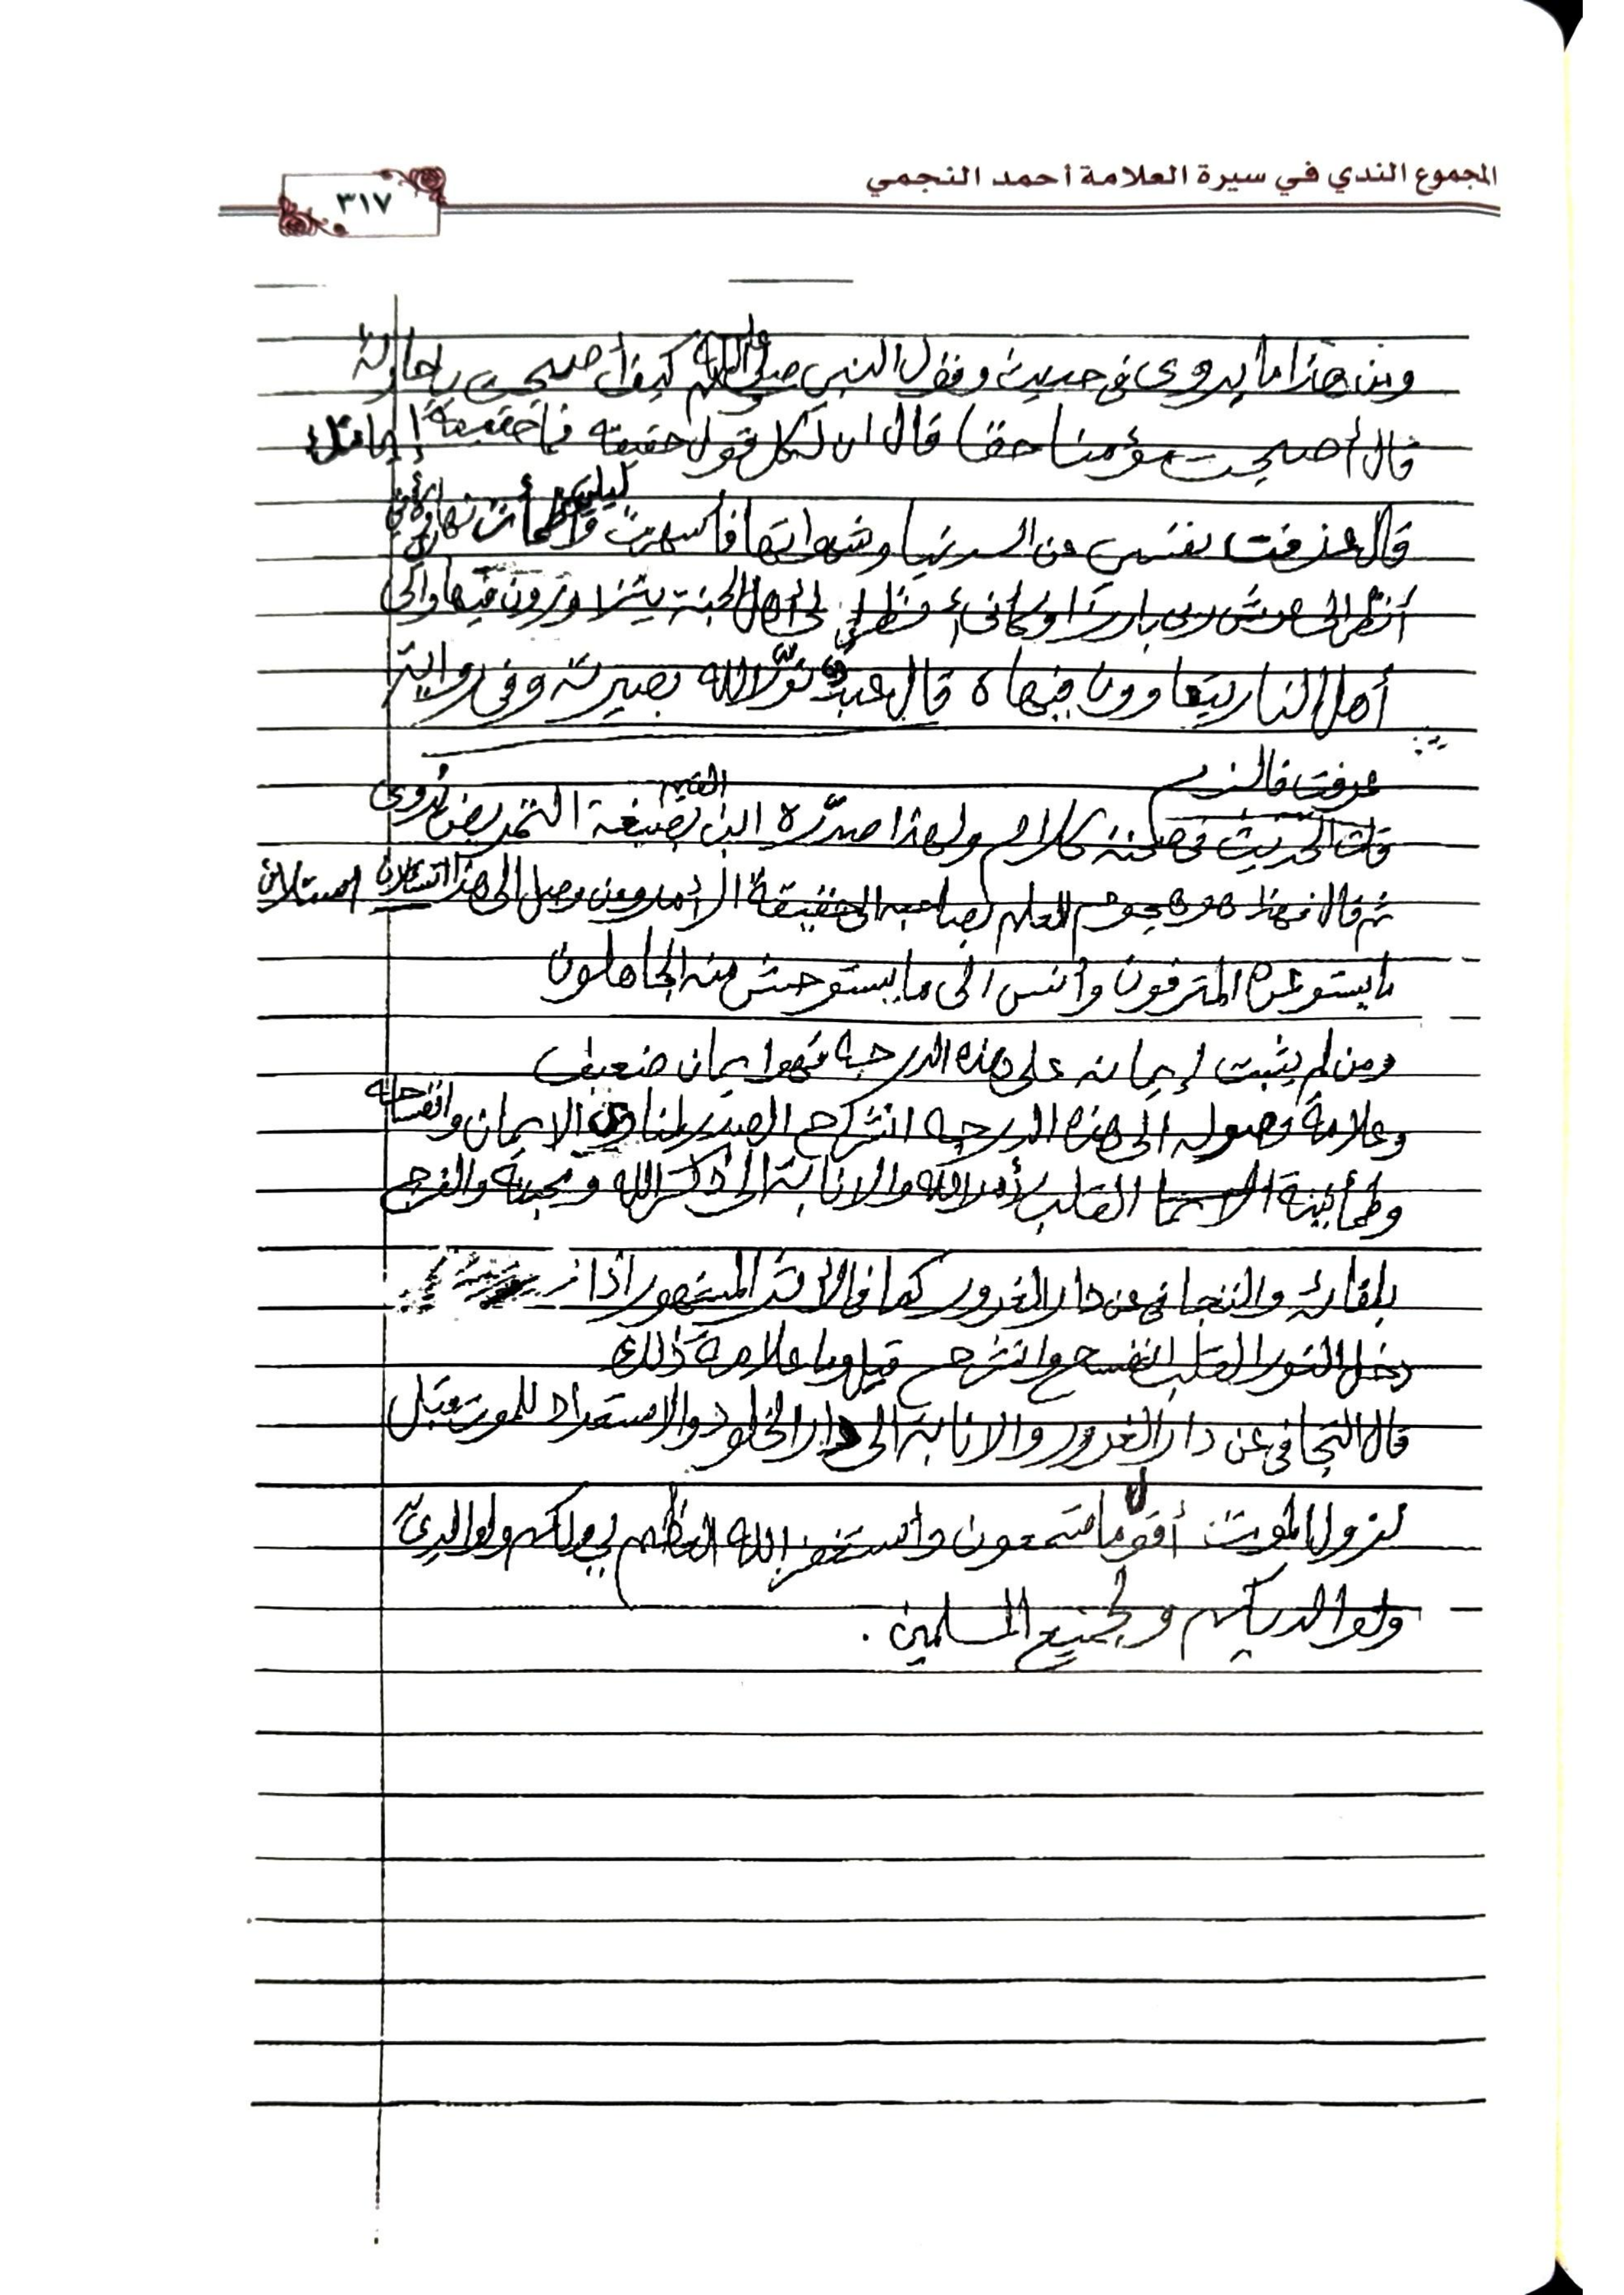 المجموع الندي في سيرة العلامة أحمد النجمي
٣١٧
ومن هذا ما يروى في حديث وقول النبي صلى الله عليه وسلم كيف أصبحت يا حارثة
قال أصبحت مؤمنا حقا قال ان لكل قول حقيقه فما حقيقة إيمانك
قال عزفت نفسي عن الدنيا وشهواتها فأسهرت ليلي وأظمأت نهاري وكأني
أنظر إلى عرش ربي بارزا وكأني أنظر إلى أهل الجنة يتزاورون فيها وإلى
أهل النار يتعاوون فيها قال عبد نور الله بصيرته وفي رواية
عرفت فالزم
قلت الحديث في صحته كلام ولهذا صدره ابن القيم بصيغة التمريض يروى
ثم قال فهذا هو هجوم العلم بصاحبه الى حقيقة الأمر ومن وصل الى هذا استلان
ما يستوعره المترفون وأنس الى ما يستوحش منه الجاهلون
ومن لم يثبت إيمانه على هذه الدرجه فهو ايمان ضعيف
وعلامة وصوله الى هذه الدرجه انشراح الصدر لمنازل الايمان وانفساحه
وطمأنينة القلب لأمر الله والانابة الى ذكر الله ومحبته والفرح
بلقائه والتجافي عن دار الغرور كما في الاثر المشهور اذا
دخل النور القلب انفسح وانشرح قيل وما علامة ذلك
قال التجافي عن دار الغرور والانابة الى دار الخلود والاستعداد للموت قبل
نزول الموت أقول ما تسمعون وأستغفر الله العظيم لي ولكم ولوالدي
ولوالديكم ولجميع المسلمين .